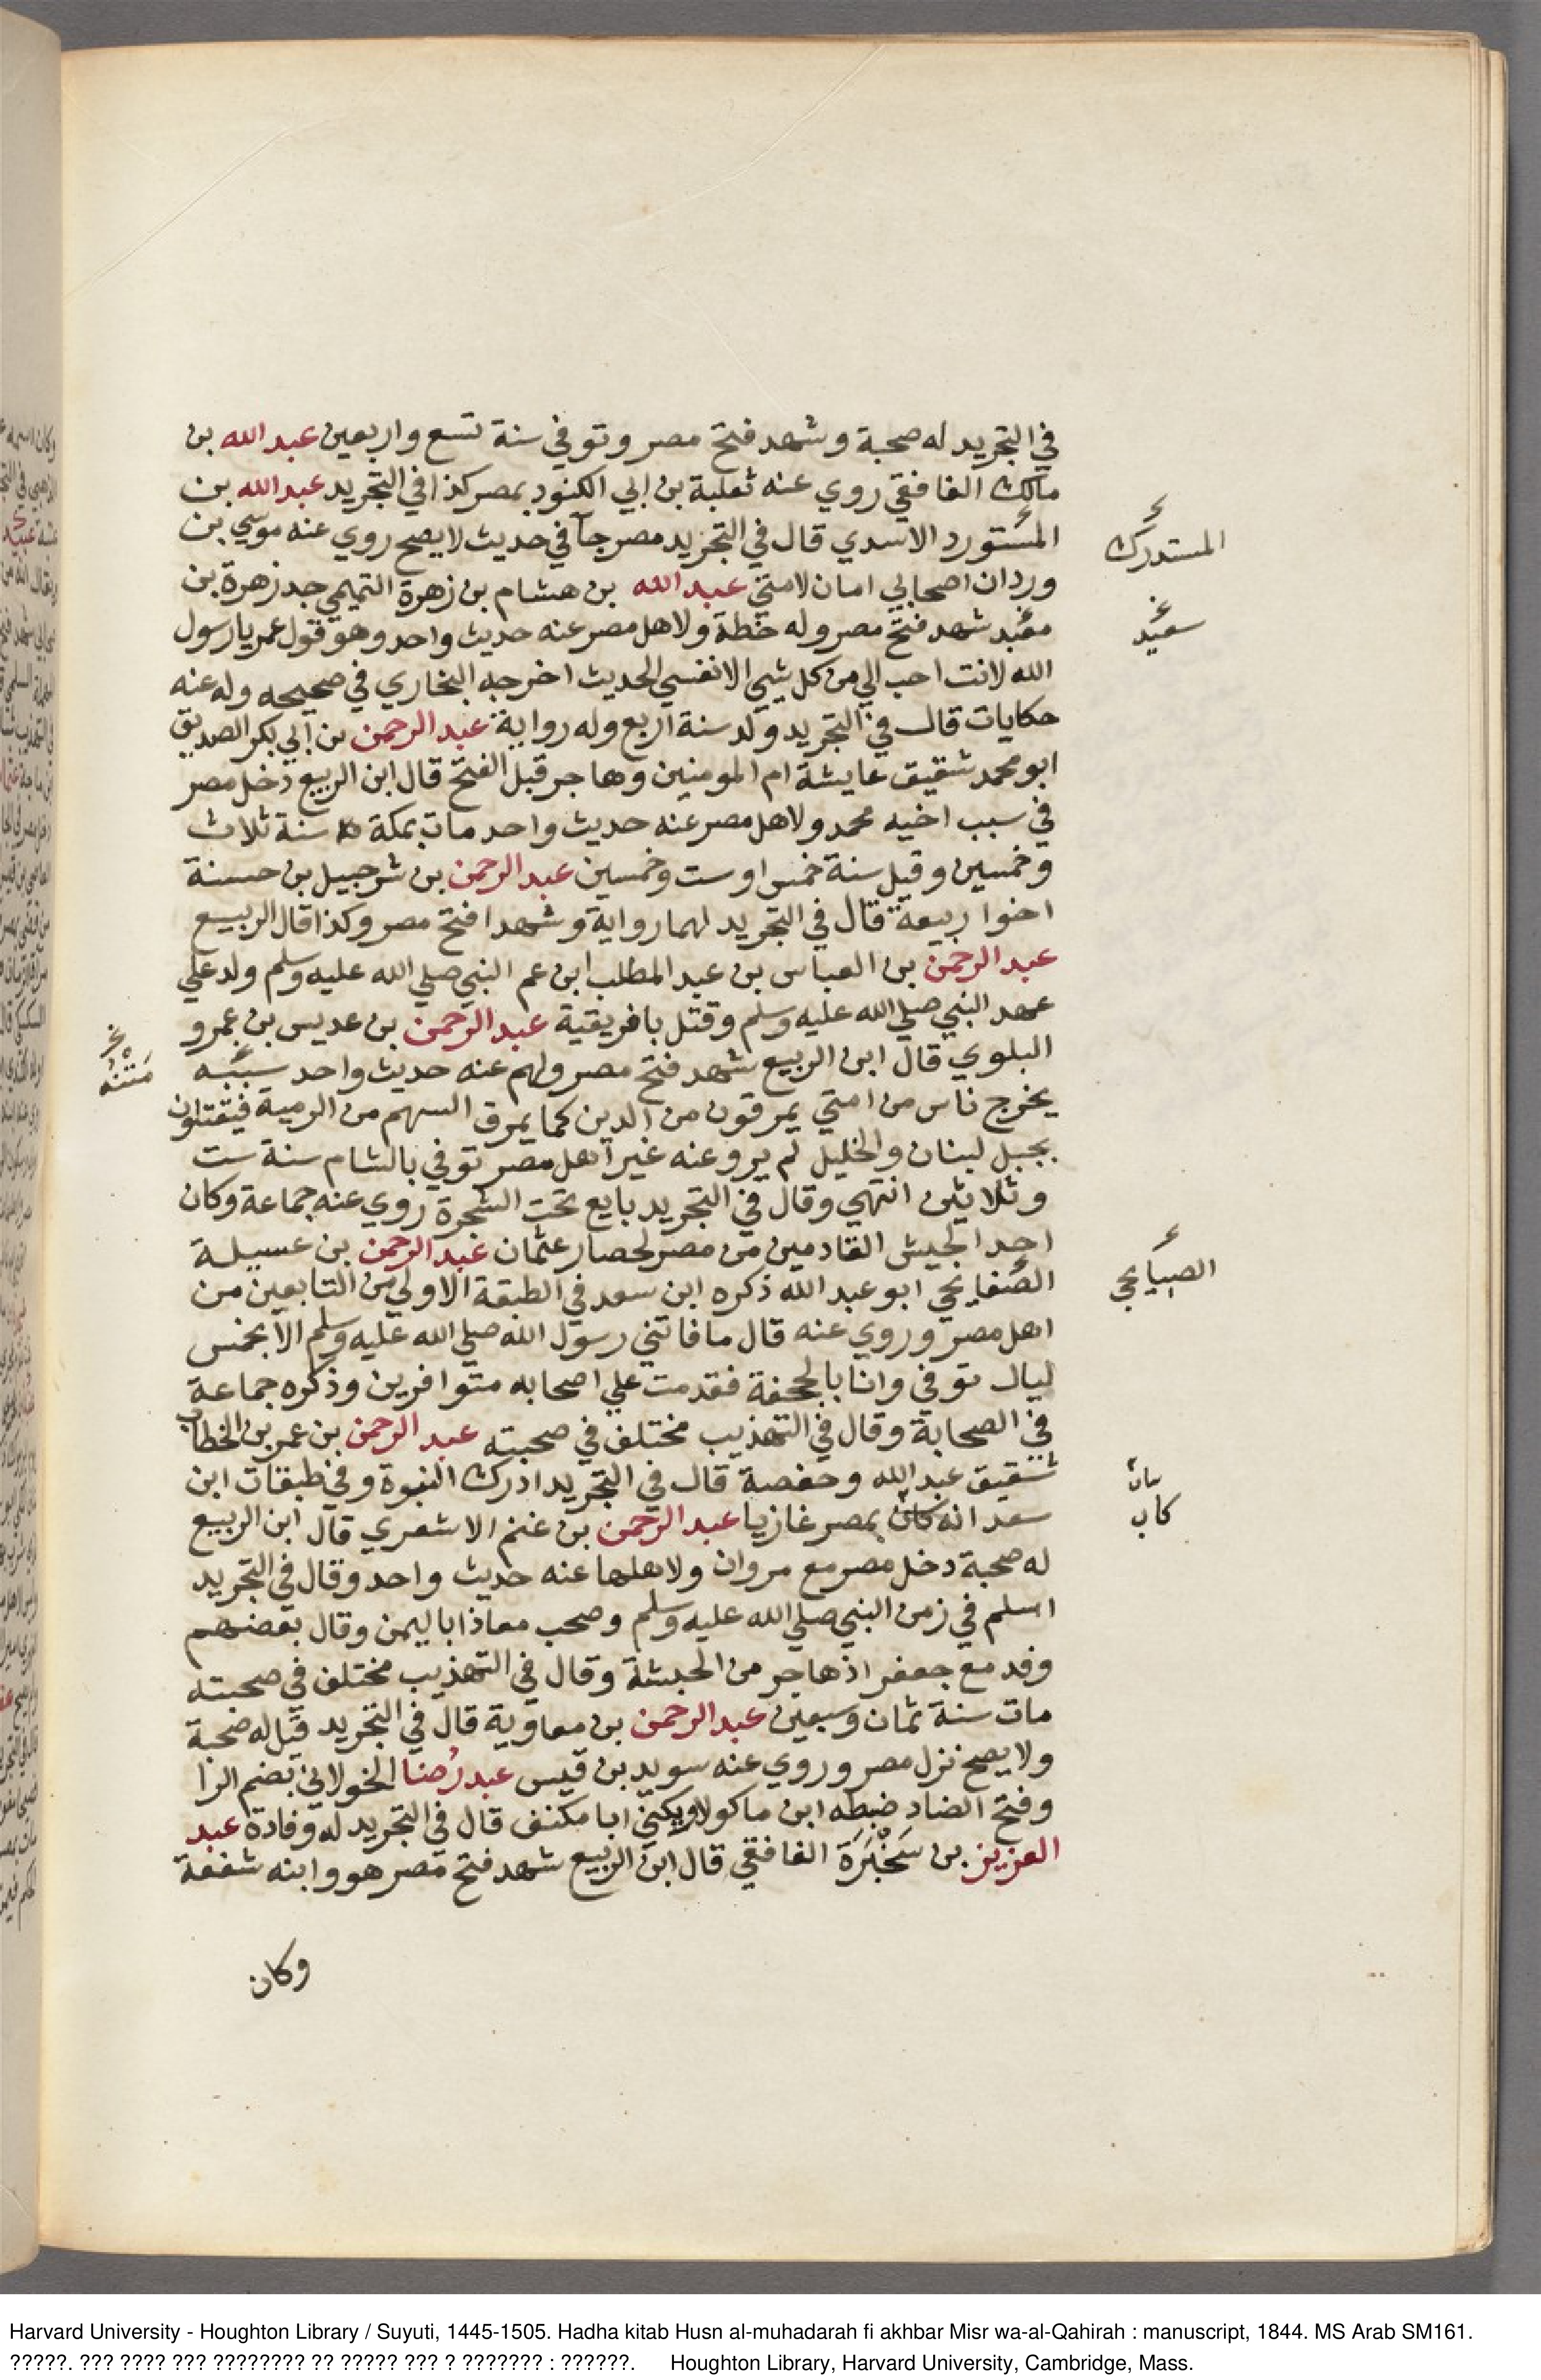 في التجريد له صحبة وشهد فتح مصر وتوفي سنة تسع واربعين عبد الله بن
مالك الغافقي روي عنه ثعلبة بن ابي الكنود بمصر كذا في التجريد عبد الله بن
المستورد الاسدي قال في التجريد مصر جآ في حديث لا يصح روي عنه موسي بن
المستدرك
وردان اصحابي امان لامتي عبد الله بن هشام بن زهرة التميمي جد زهرة بن
معبد شهد فتح مصر وله خطة ولاهل مصر عنه حديث واحد وهو قول عمر يا رسول
سعيد
الله لانت احب الي من كل شيي الا نفسي الحديث اخرجه البخاري في صحيحه وله عنه
حكايات قال في التجريد ولد سنة اربع وله رواية عبد الرحمن بن ابي بكر الصديق
ابو محمد شقيق عايشة ام المومنين وهاجر قبل الفتح قال ابن الربيع دخل مصر
في سبب اخيه محمد ولاهل مصر عنه حديث واحد مات بمكة سنة ثلاث
وخمسين وقيل سنة خمس او ست وخمسين عبد الرحمن بن شرحبيل بن حسنة
اخوا ربيعة قال في التجريد لهما رواية وشهدا فتح مصر وكذا قال الربيع
عبد الرحمن بن العباس بن عبد المطلب ابن عم النبي صلي الله عليه وسلم ولد علي
عهد النبي صلي الله عليه وسلم وقتل بافريقية عبد الرحمن بن عديس بن عمرو
البلوي قال ابن الربيع شهد فتح مصر ولهم عنه حديث واحد سببه
متنه
يخرج ناس من امتي يمرقون من الدين كما يمرق السهم من الرمية فيقتلون
بجبل لبنان والخليل لم يرو عنه غير اهل مصر توفي بالشام سنة ست
وثلاثين انتهي وقال في التجريد بايع تحت الشجرة روي عنه جماعة وكان
احد الجيش القادمين من مصر لحصار عثمان عبد الرحمن بن عسيلة
الصنايحي ابو عبد الله ذكره ابن سعد في الطبقة الاولي من التابعين من
اهل مصر وروي عنه قال ما فاتني رسول الله صلي الله عليه وسلم الا بخمس
ليال توفي وانا بالجحفة فقدمت علي اصحابه متوافرين وذكره جماعة
في الصحابة وقال في التهذيب مختلف في صحبته عبد الرحمن بن عمر بن الخطاب
شقيق عبد الله وحفصة قال في التجريد ادرك النبوة وفي طبقات ابن
سعد انه كان بمصر غازيا عبد الرحمن بن غنم الاشعري قال ابن الربيع
له صحبة دخل مصر مع مروان ولاهلها عنه حديث واحد وقال في التجريد
اسلم في زمن النبي صلي الله عليه وسلم وصحب معاذا باليمن وقال بعضهم
وفد مع جعفر اذ هاجر من الحبشة وقال في التهذيب مختلف في صحبته
مات سنة ثمان وسبعين عبد الرحمن بن معاوية قال في التجريد قيل له صحبة
ولا يصح نزل مصر وروي عنه سويد بن قيس عبد رُضا الخولاني بضم الرا
وفتح الضاد ضبطه ابن ماكولا ويكني ابا مكنف قال في التجريد له وفادة عبد
العزيز بن سَخْبَرَة الغافقي قال ابن الربيع شهد فتح مصر هو وابنه شفعة
وكان
Harvard University - Houghton Library / Suyuti, 1445-1505. Hadha kitab Husn al-muhadarah fi akhbar Misr wa-al-Qahirah : manuscript, 1844. MS Arab SM161.
?????. ??? ???? ??? ???????? ?? ????? ??? ? ??????? : ??????. Houghton Library, Harvard University, Cambridge, Mass.